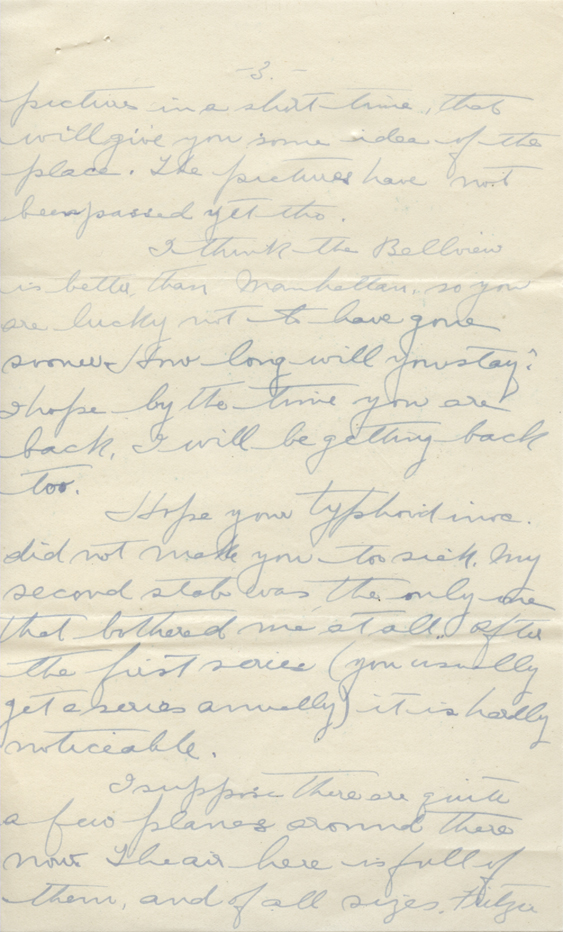 -3.-
pictures in a short time, that
will give you some idea of the
place. The pictures have not
been passed yet tho.
I think the Bellview
is better than Manhattan, so you
are lucky not to have gone
sooner. How long will you stay?
I hope by the time you are
back, I will be getting back
too.
Hope your typhoid inoc.
did not make you too sick. My
second stab was the only one
that bothered me at all. After
the first series (you usually
get a series annually) it is hardly
noticeable.
I suppose there are quite
a few planes around there
now. The air here is full of
them, and of all sizes.